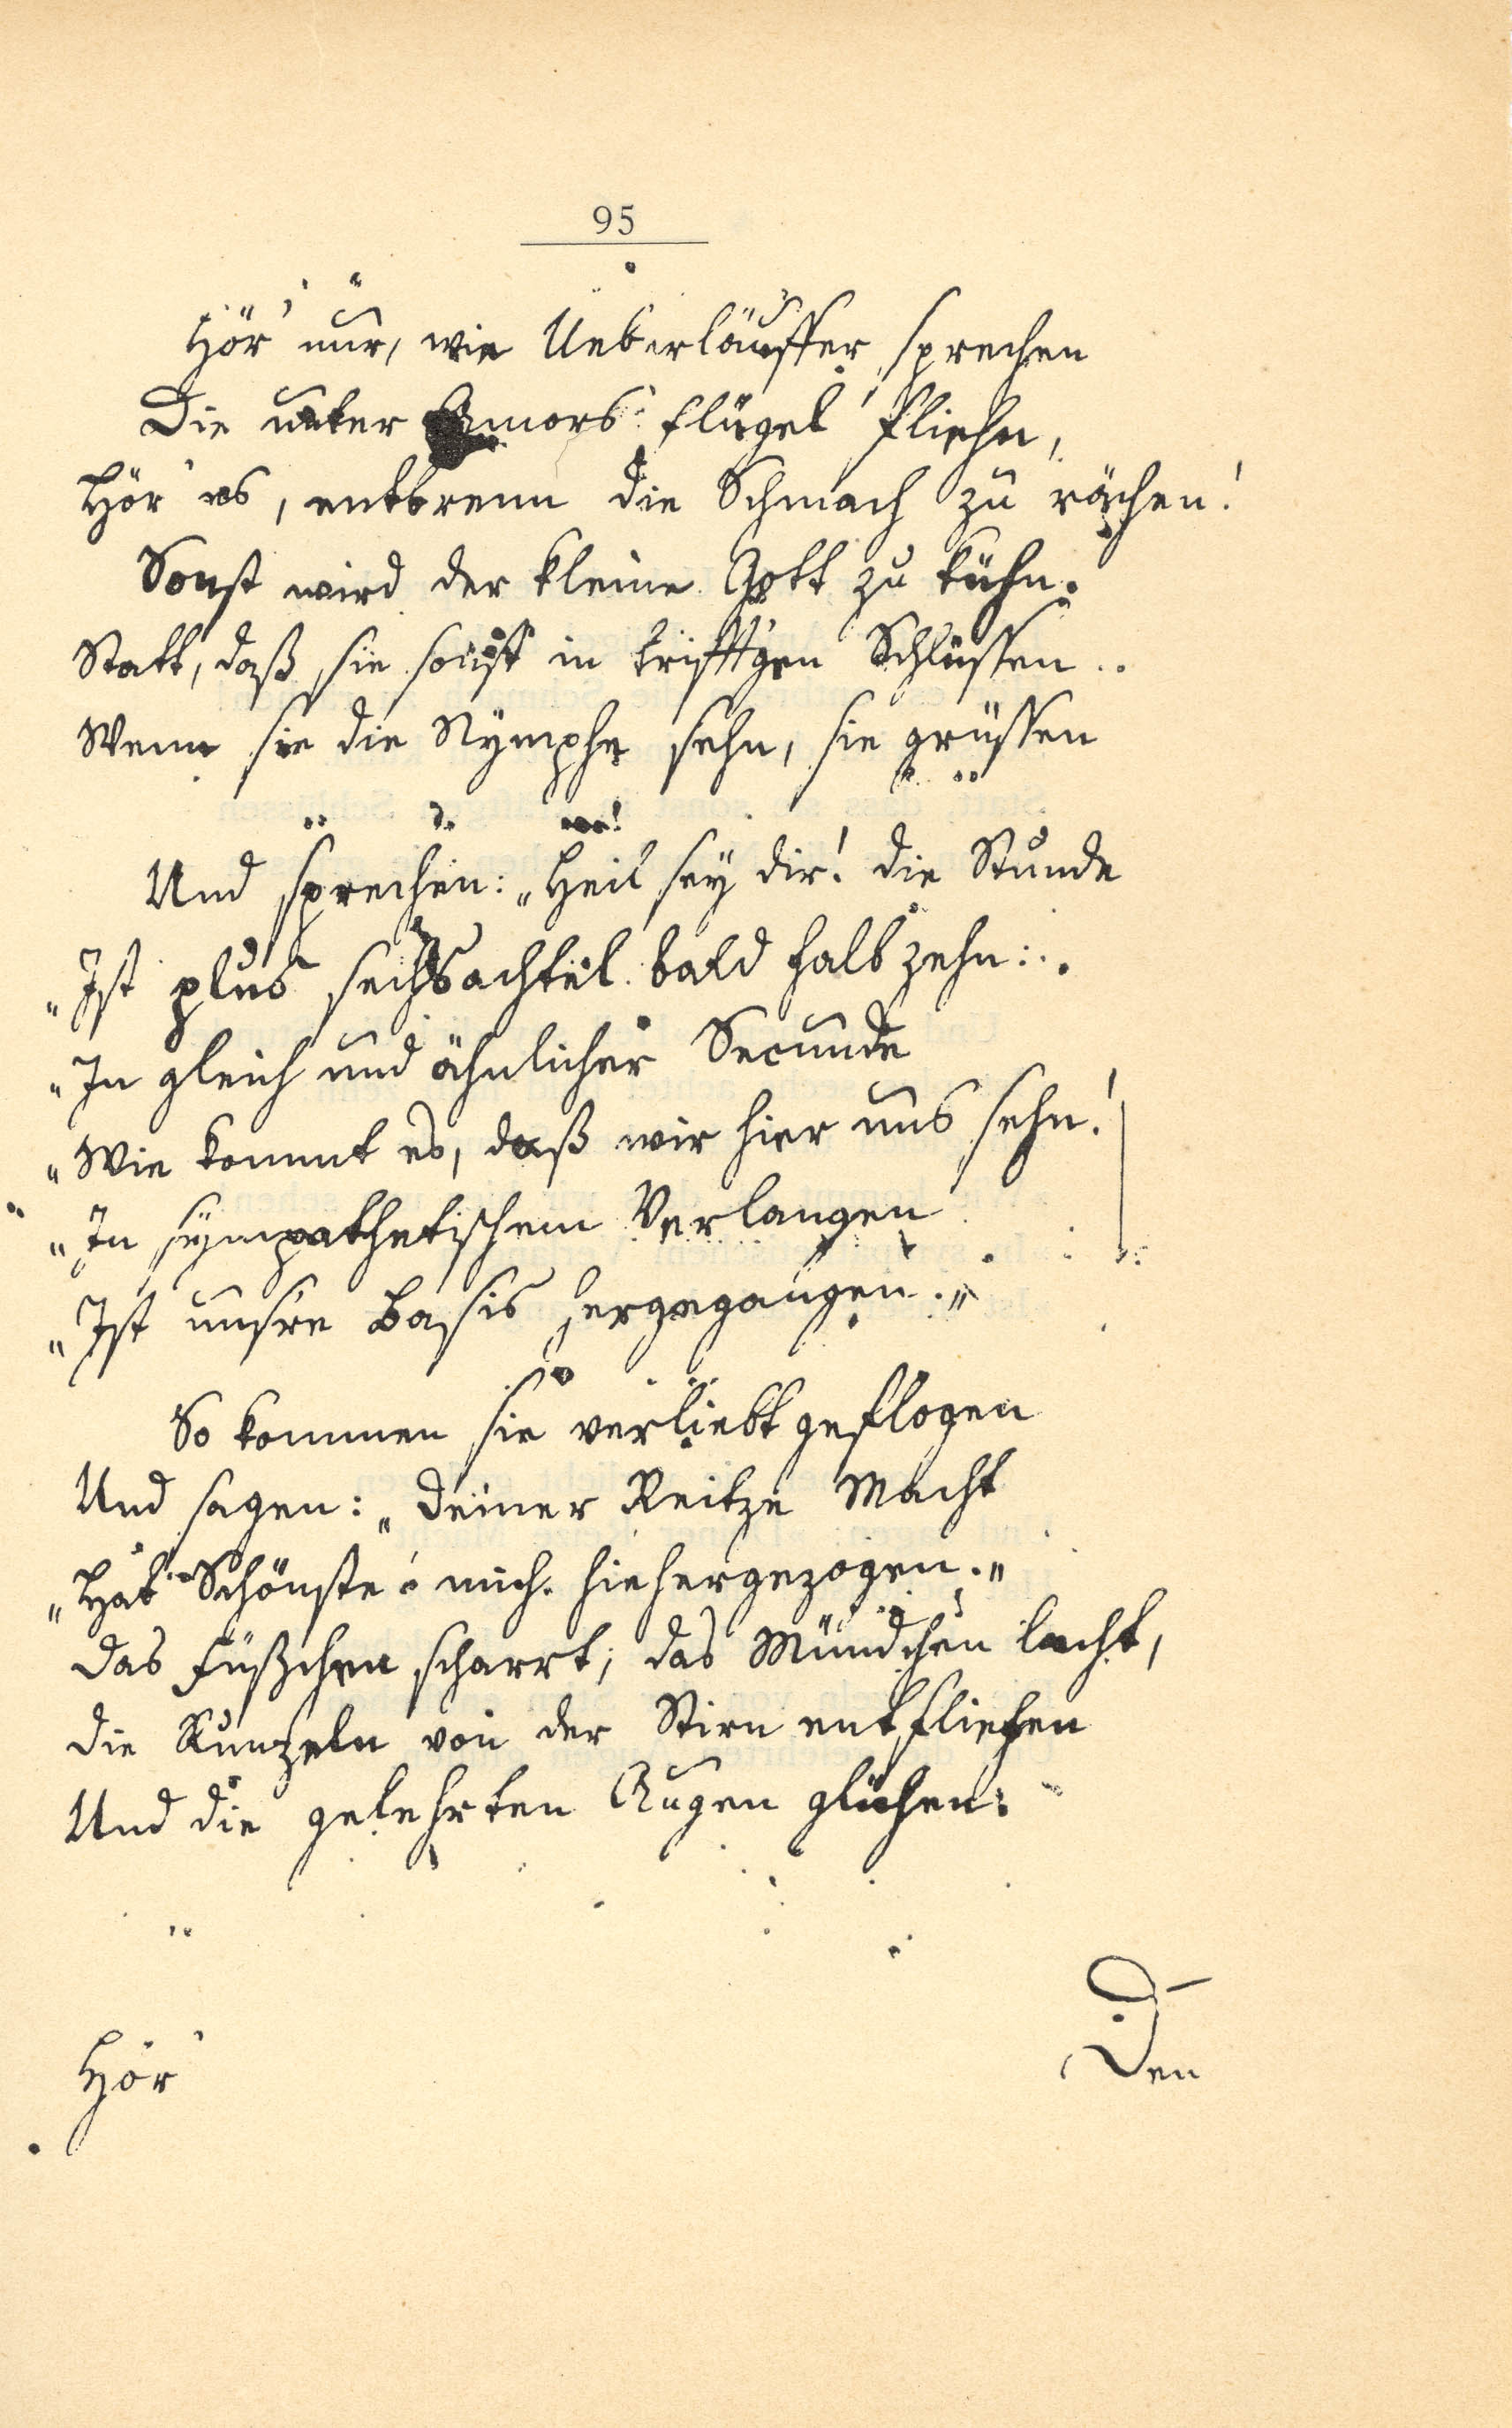 95
Hör' nur, wie Ueberläuffer sprechen
Die unter Amors Flügel fliehn,
Hör' es, entbrenn die Schmach zu rächen!
Sonst wird der kleine Gott zu kühn.
Statt, daß sie sonst in trifft'gen Schlüssen
Wenn sie die Nymphe sehn, sie grüssen
Und sprechen: „Heil sey dir! die Stunde
„Ist plus sechsachtel bald halb zehn:
„In gleich und ähnlicher Secunde
„Wie kommt es, daß wir hier uns sehn!
„In sympathetischem Verlangen
„Ist unsre Basis hergegangen."
So kommen sie verliebt geflogen
Und sagen: „Deiner Reitze Macht
„Hat Schönste mich hiehergezogen."
Das Füßchen scharrt, das Mündchen lacht,
Die Runzeln von der Stirn entfliehen
Und die gelehrten Augen glühen.
Hör'
Den